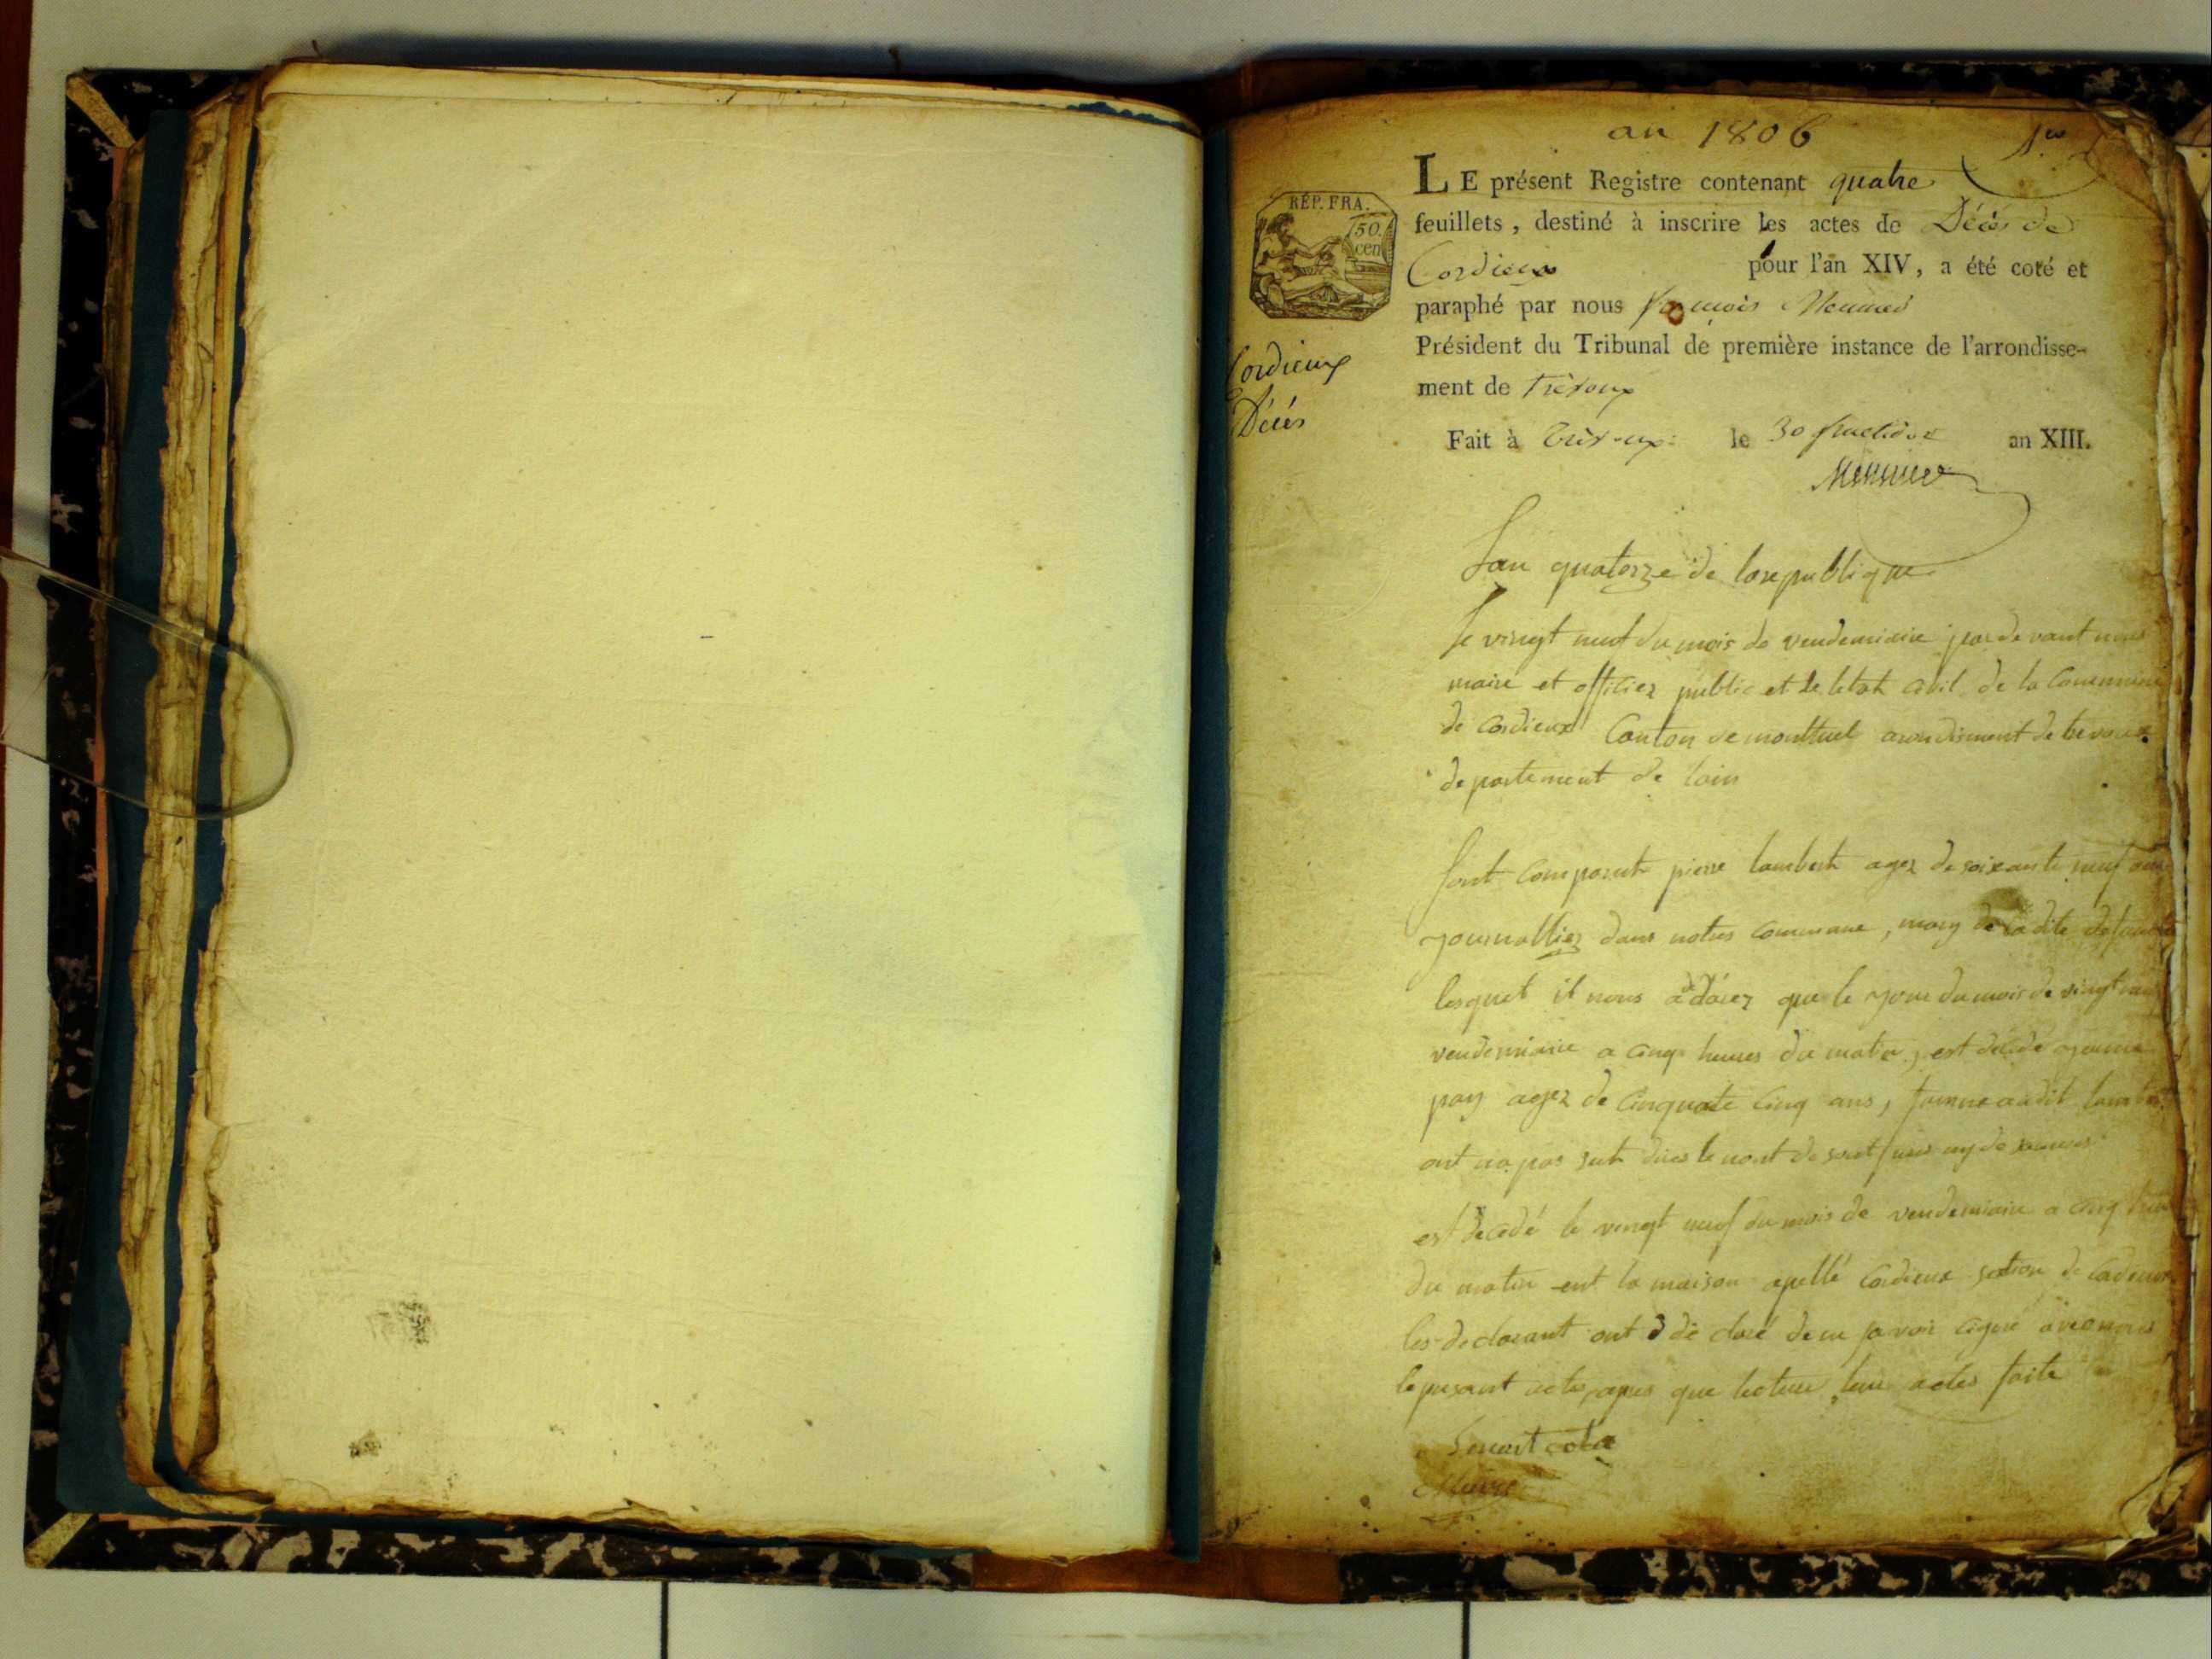 an 1806
1er
LE présent Registre contenant quatre
feuillets, destiné à inscrire les actes de Décès de
Cordieux pour l'an XIV, a été coté et
paraphé par nous françois
Président du Tribunal de première instance de l'arrondisse-
ment de Trévoux
Fait à Trévoux le 30 fructidor an XIII.
RÉP. FRA.
50.
cen
Cordieux
Décés
Lan quatorze de larepublique
le vingt neuf du mois de vendemiaire pardevant nous
maire et officiez public et de letat civil de la Commune
de Cordieux Canton de monttuel arondisment de trevoux
departement de lain
sont comparut pierre lambert agez de soixante neuf ans
journalliez dans notres commune, mary de la dite defunte
lesquet il nous que le jour du mois de vingt neuf
vendemiaire a cinq heures du matin, est décédé
pay agez de cinquate cinq ans, femme audit lambert
ont na pas sut dires le nont de ny de
est decedé le vengt neuf du mois de vendemiaire a cinq
du matin ent la maison apellé Cordieux section de Cordieux
les declarant ont d dé claré de ne savoir signé avec nous
le present actes, apres que lecture leur actes faite
Maire